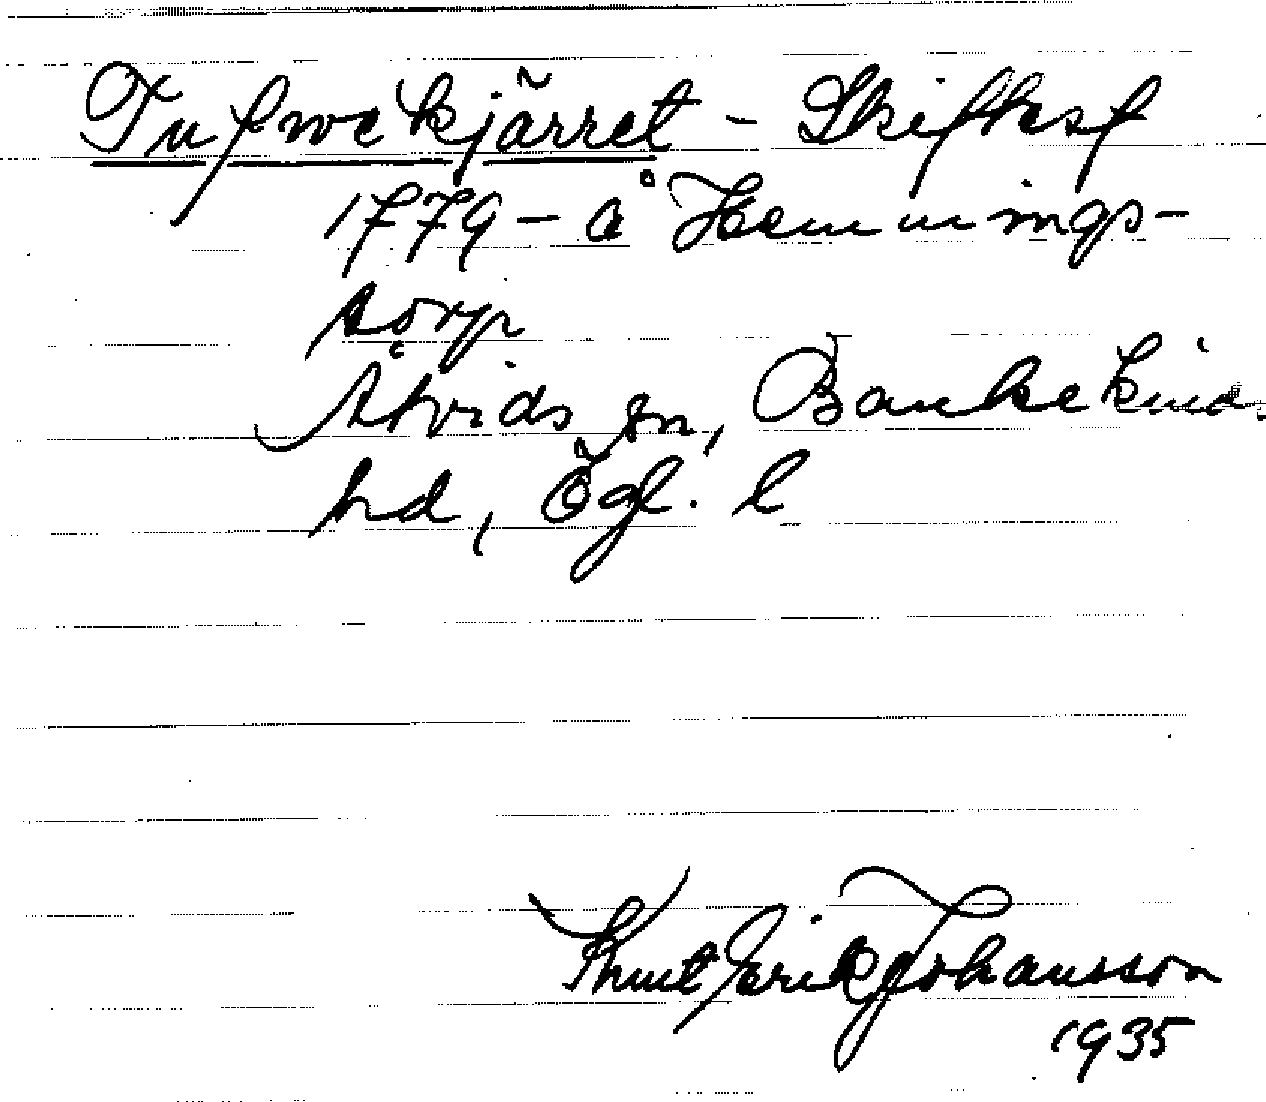 Tufwekjärret - Skiftesf
1779 - å Hemmings-
torp
Åtvids sn, Bankekind.
hd, Ögl. l
Knut Erik Johansson
1935